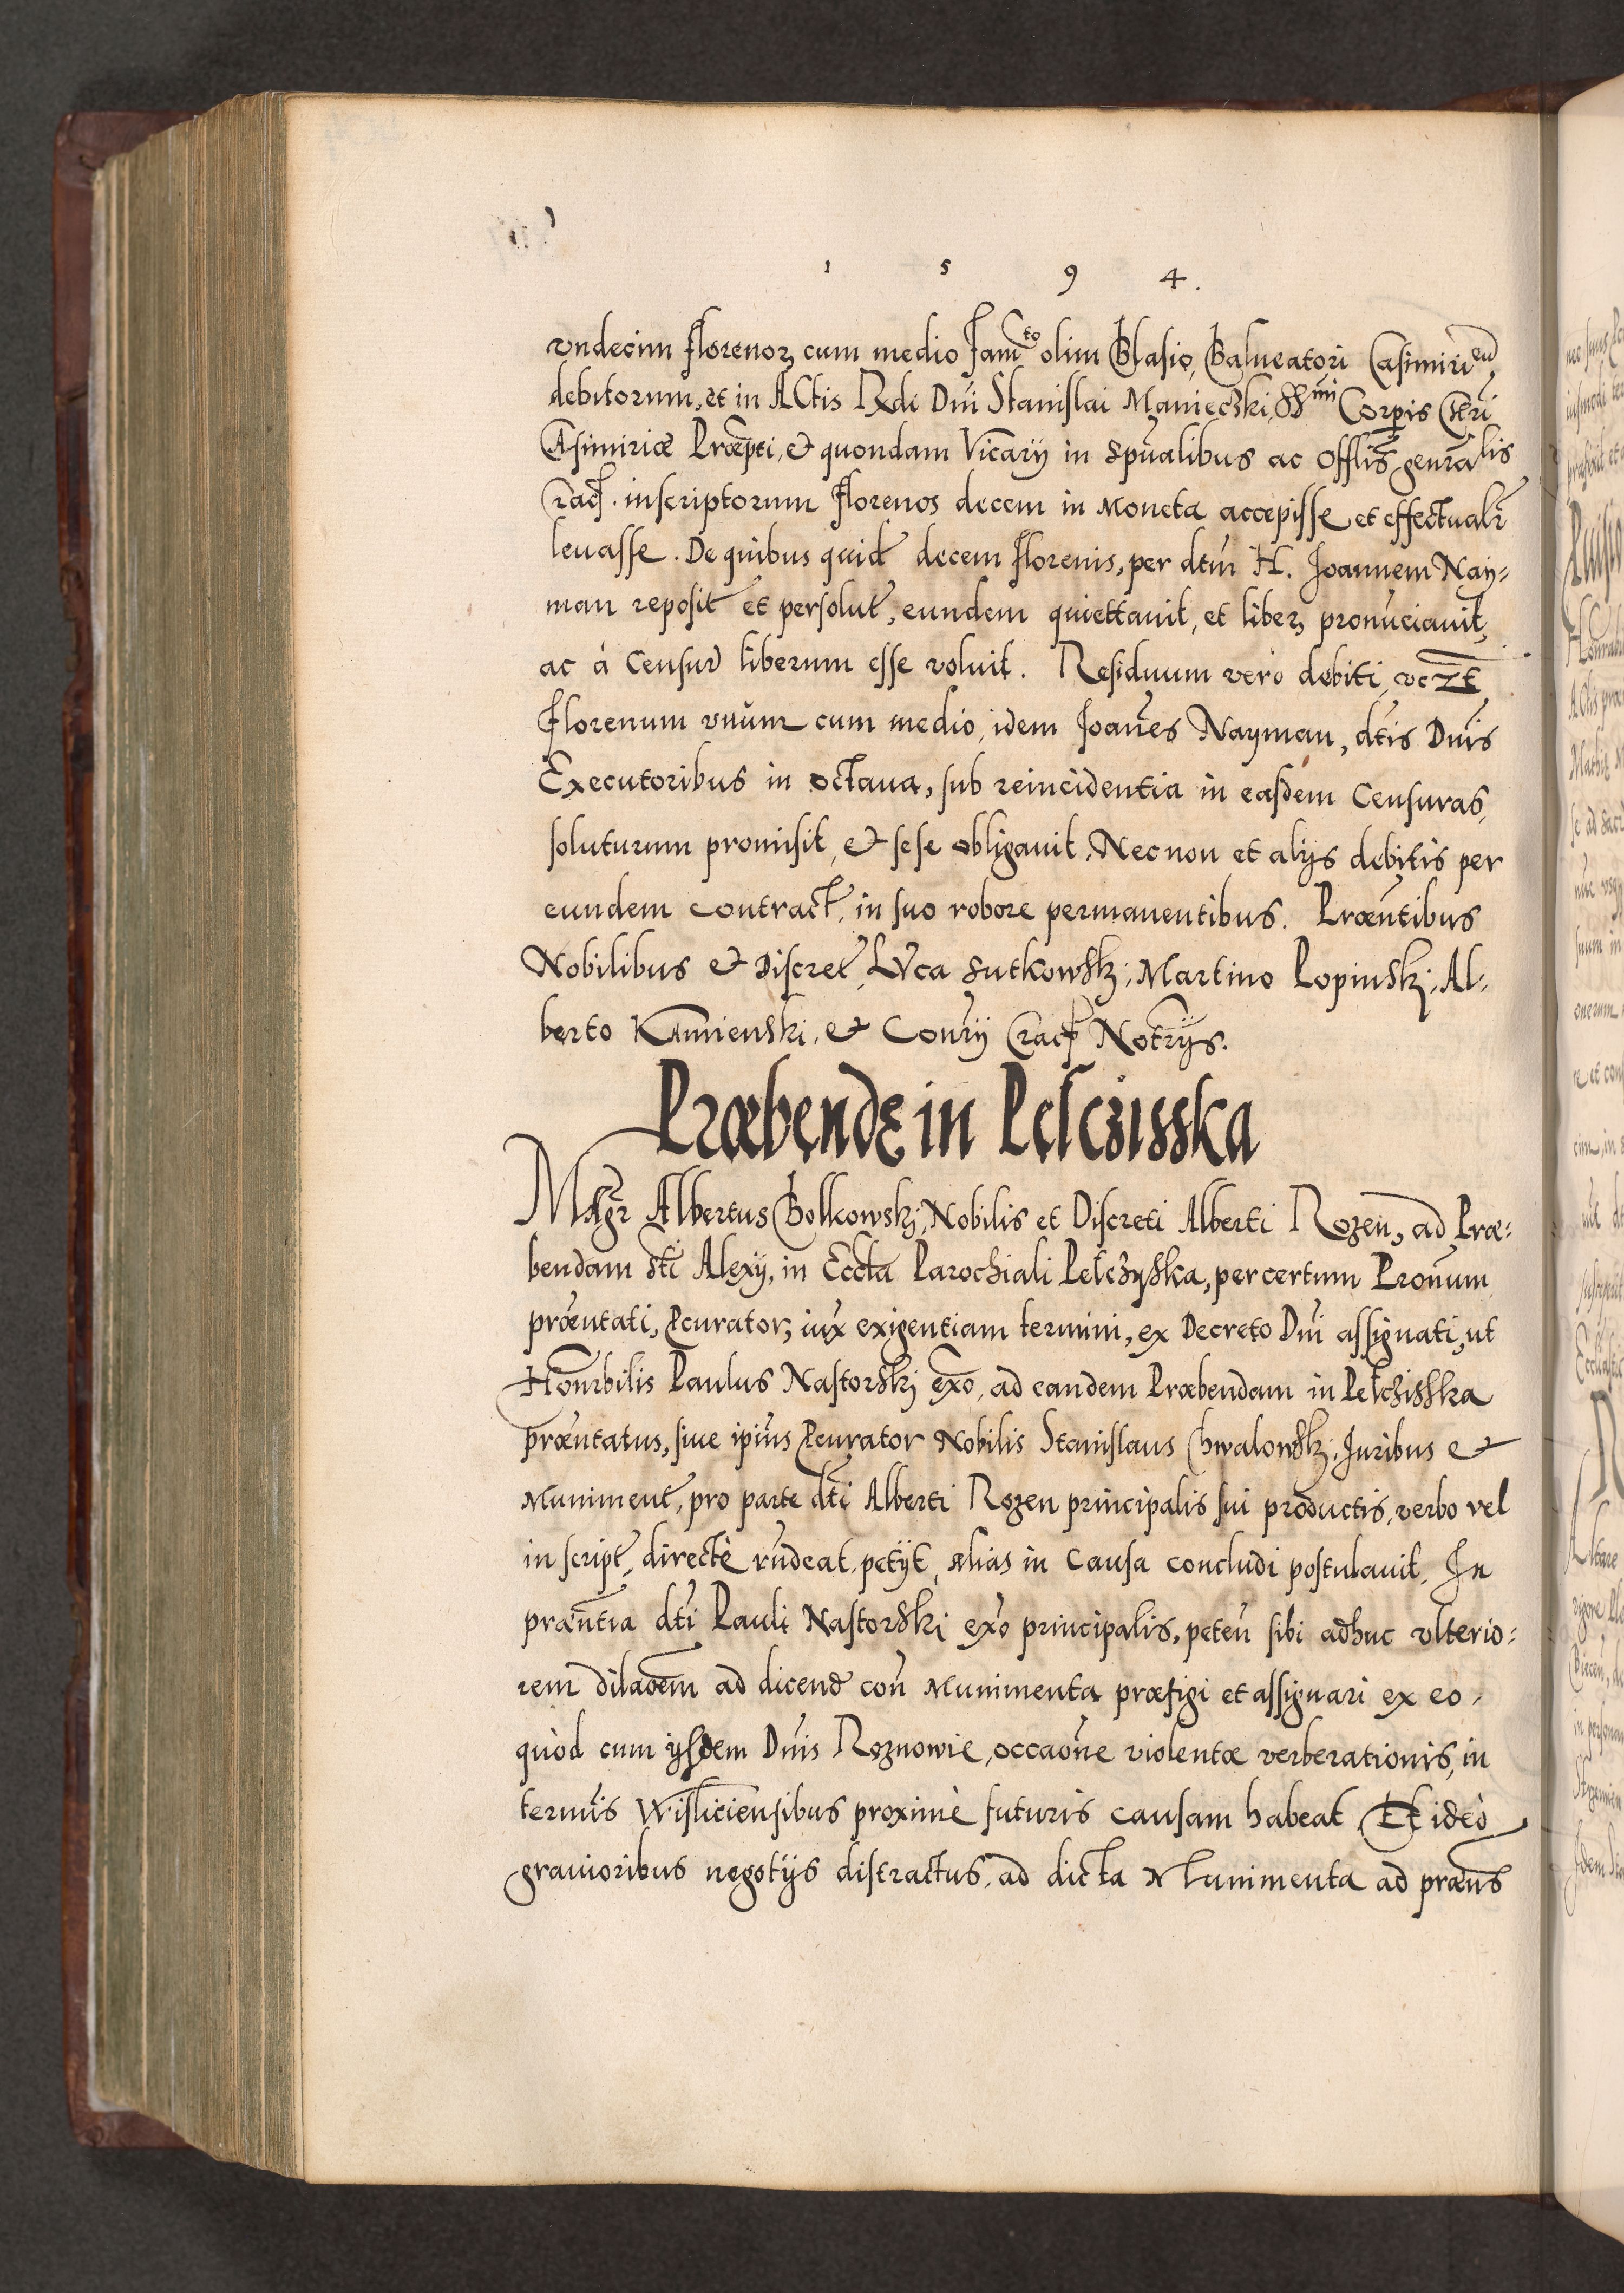 1 5 9 4.
vndecim florenoꝝ cum medio fam^to olim Blasio, Balneatori Casimirien̄,
debitorum, et in Actis Rdi Dni Stanislai Manieczki, SSmi Corpis Chri
Casimiriæ Præpti, & quondam Vicarij in Spualibus ac Offlis genralis
Crac̄. inscriptorum florenos decem in Moneta accepisse et effectualr̄
leuasse. De quibus quid̄ decem florenis, per dtm̄ H. Joannem Nay=
man reposit̄ et persolut̄, eundem quiettauit, et liberꝝ pronūciauit,
ac à Censur̄ liberum esse voluit. Residuum verò debiti, vczt̄
florenum vnum cum medio, idem Joan̄es Nayman, dt̄is Dn̄is
Executoribus in octaua, sub reincidentia in easdem Censuras,
soluturum promisit, & sese obligauit, Necnon et alijs debitis per
eundem contract̄, in suo robore permanentibus. Præn̄tibus
Nobilibus & Discret̄, Lvca Sutkowskj, Martino Lopinskj, Al-
berto Kamienski, & Con̄rij Crac̄ Not̄rijs.
Præbendę in Pelczisska
Magr̄ Albertus Bolkowskj, Nobilis et Discreti Alberti Rozen, ad Præ=
bendam Sti Alexij, in Eccta Parochiali Pelczyska, per certum Pron̄um
præn̄tati, Pcurator, iux̄ exigentiam termini, ex Decreto Dn̄i assignati, ut
Hon̄rbilis Paulus Nastorskj ex̄o, ad eandem Præbendam in Pelchisska
præn̄tatus, siue ipius Pcurator Nobilis Stanislaus Chwalowskj, Juribus &
Muniment̄, pro parte dt̄i Alberti Rozen principalis sui productis, verbo vel
in script̄, directè rn̄deat, petijt, alias in Causa concludi postulauit. In
præn̄tia dt̄i Pauli Nastorski ex̄o principalis, peten̄ sibi adhuc vlterio=
rem dilaōem ad dicend̄ con̄ Munimenta præfigi et assignari ex eo,
quòd cum ijsdem Dn̄is Roznowie, occaōne violentæ verberationis, in
termīs Wisliciensibus proximè futuris causam habeat, Et ideò
grauioribus negotijs distractus, ad dicta Munimenta ad præn̄s